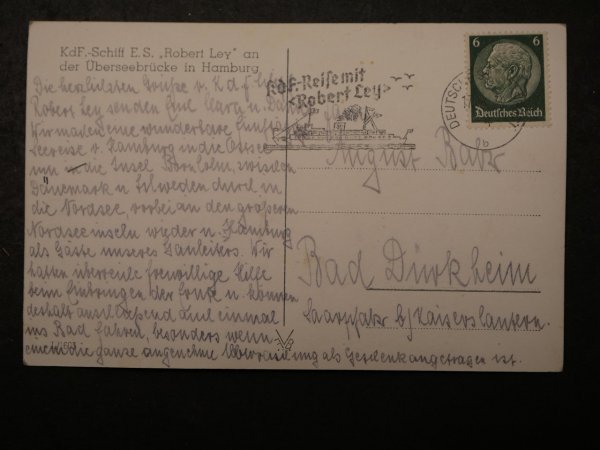 KdF.-Schiff E.S. „Robert Ley" an
der Überseebrücke in Hamburg
Die herzlichsten Grüße v. K d f
Robert Ley senden Euch
Wir machen eine wunderbare
Seereise v. Hamburg in die Ostsee
um die Insel Bornholm, zwischen
Dänemark u Schweden durch in
die Nordsee, vorbei an den größeren
Nordseeinseln wieder n. Hamburg
als Gäste unseres Gauleiters. Wir
hatten freiwillige Hilfe
beim Einbringen der Ernte u. können
deshalb einmal
ins Bad fahren, besonders wenn
einem die ganze angenehme als Geschenk angetragen ist.
1/1603
KdF.-Reise mit
<Robert Ley>
6 6
Deutsches Reich
DEUTSCHE
b
August
Bad Dürkheim
Saarpfalz b/Kaiserslautern.